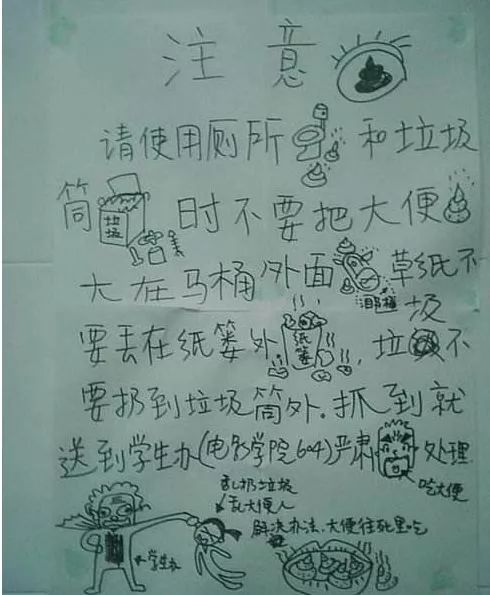 注意
请使用厕所和垃圾
筒垃圾时不要把大便
大在马桶外面草纸不
要丢在纸篓外纸篓，垃圾不
要扔到垃圾筒外.抓到就
送到学生办(电影学院604)严肃处理
吃大便
乱扔垃圾
乱大便人
解决办法、大便往死里吃
学生办